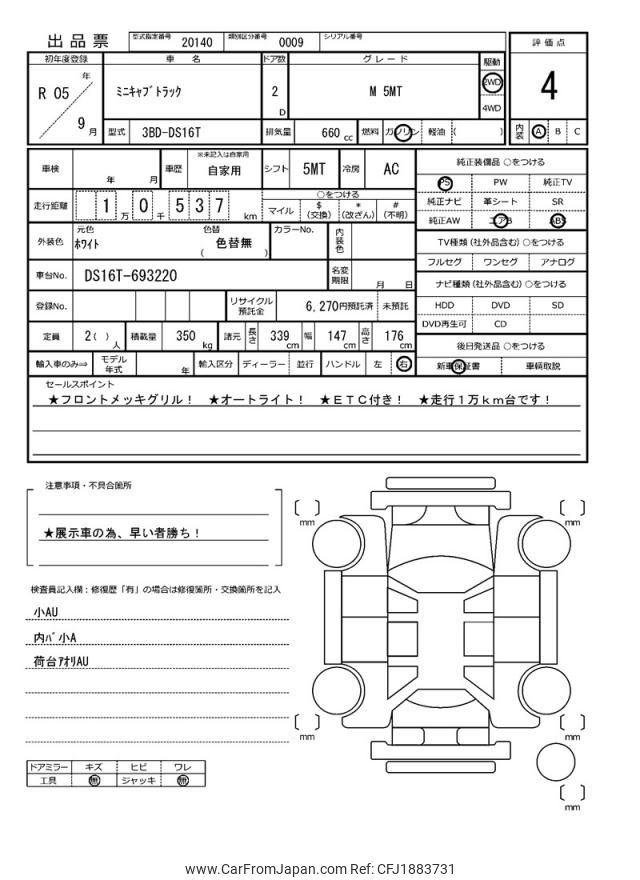 出品票 型式指定番号 20140 類別区分番号 0009 シリアル番号
評価点
4
内装 A B C
初年度登録 車名 ドア数 グレード 駆動
R 05 年 9 月
ミニキャブトラック 2 D M 5MT 2WD
4WD
型式 3BD-DS16T 排気量 660 cc 燃料 ガソリン 軽油 ( )
車検 年 月 車歴 ※未記入は自家用 自家用 シフト 5MT 冷房 AC
走行距離 1 万 0 千 5 3 7 km
○をつける
マイル $ (交換) * (改ざん) # (不明)
外装色 元色 ホワイト 色替 色替無 ( ) カラーNo. 内装色
車台No. DS16T-693220 名変期限 月 日
登録No. リサイクル預託金 6,270円預託済 未預託
定員 2( )人 積載量 350 kg 諸元 長さ 339 cm 幅 147 cm 高さ 176 cm
輸入車のみ⇒ モデル年式 年 輸入区分 ディーラー 並行 ハンドル 左 右
純正装備品 ○をつける
PS PW 純正TV
純正ナビ 革シート SR
純正AW エアB ABS
TV種類(社外品含む)○をつける
フルセグ ワンセグ アナログ
ナビ種類(社外品含む)○をつける
HDD DVD SD
DVD再生可 CD
後日発送品 ○をつける
新車保証書 車輌取説
セールスポイント
★フロントメッキグリル! ★オートライト! ★ETC付き! ★走行1万km台です!
注意事項・不具合箇所
★展示車の為、早い者勝ち!
検査員記入欄:修復歴「有」の場合は修復箇所・交換箇所を記入
小AU
内バ小A
荷台アオリAU
ドアミラー キズ ヒビ ワレ
工具 無 ジャッキ 無
mm
mm
mm
mm
mm
www.CarFromJapan.com Ref: CFJ1883731